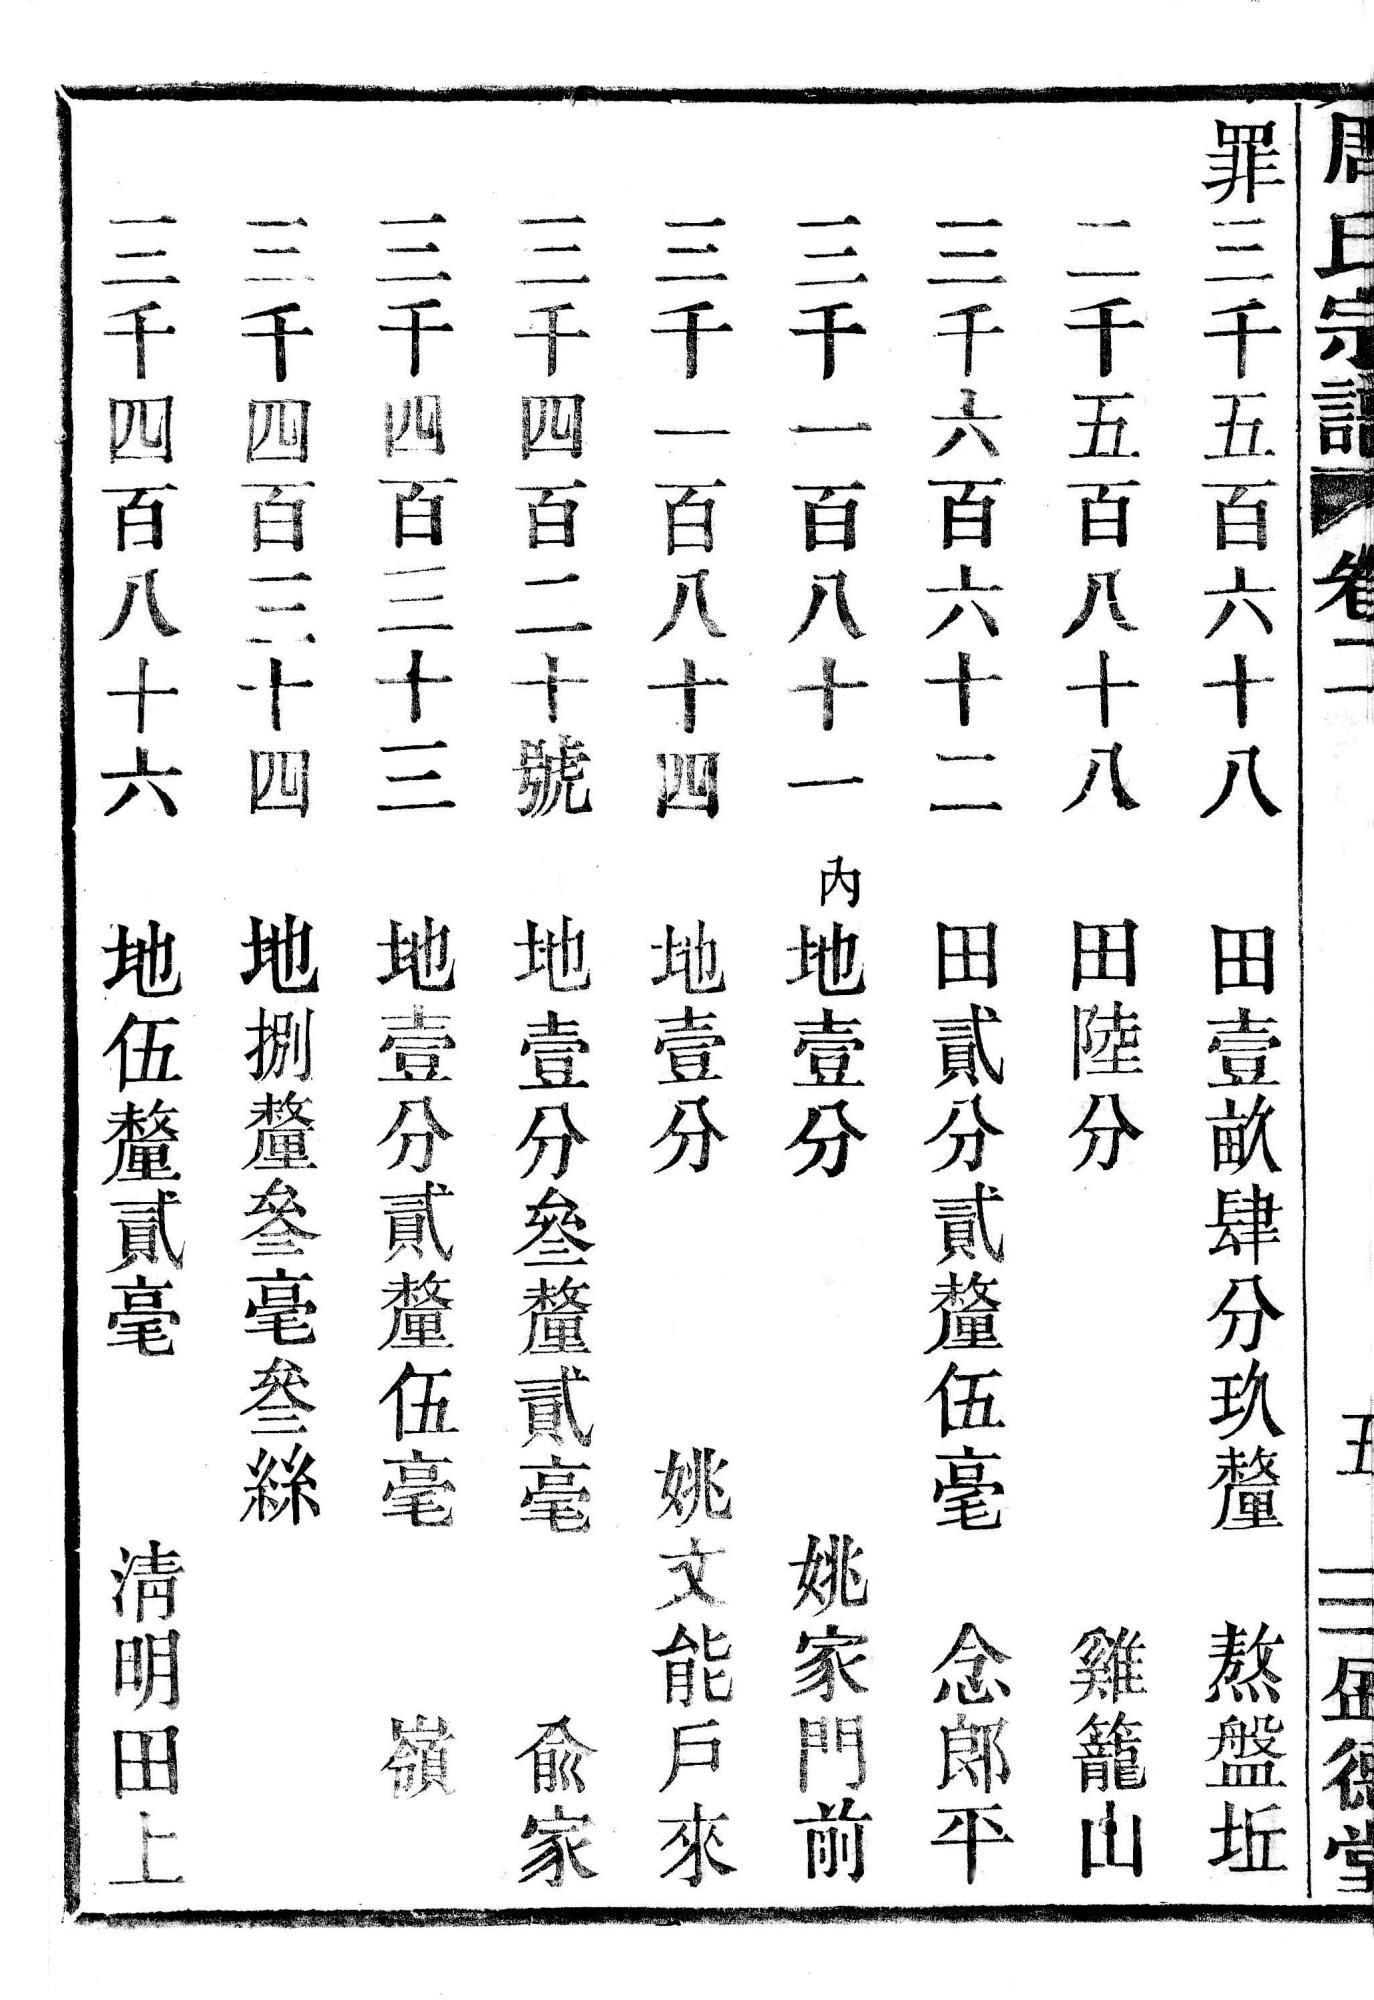 周氏宗譜 卷二 五 三 盈德堂
罪 三千五百六十八 田壹畝肆分玖釐 熬盤坵
二千五百八十八 田陸分 雞籠山
三千六百六十二 田貳分貳釐伍毫 念郎平
三千一百八十一 內地壹分 姚家門前
三千一百八十四 地壹分 姚文能戶來
三千四百二十號 地壹分叄釐貳毫 俞家
三千四百三十三 地壹分貳釐伍毫 嶺
三千四百三十四 地捌釐叄毫叄絲
三千四百八十六 地伍釐貳毫 淸明田上